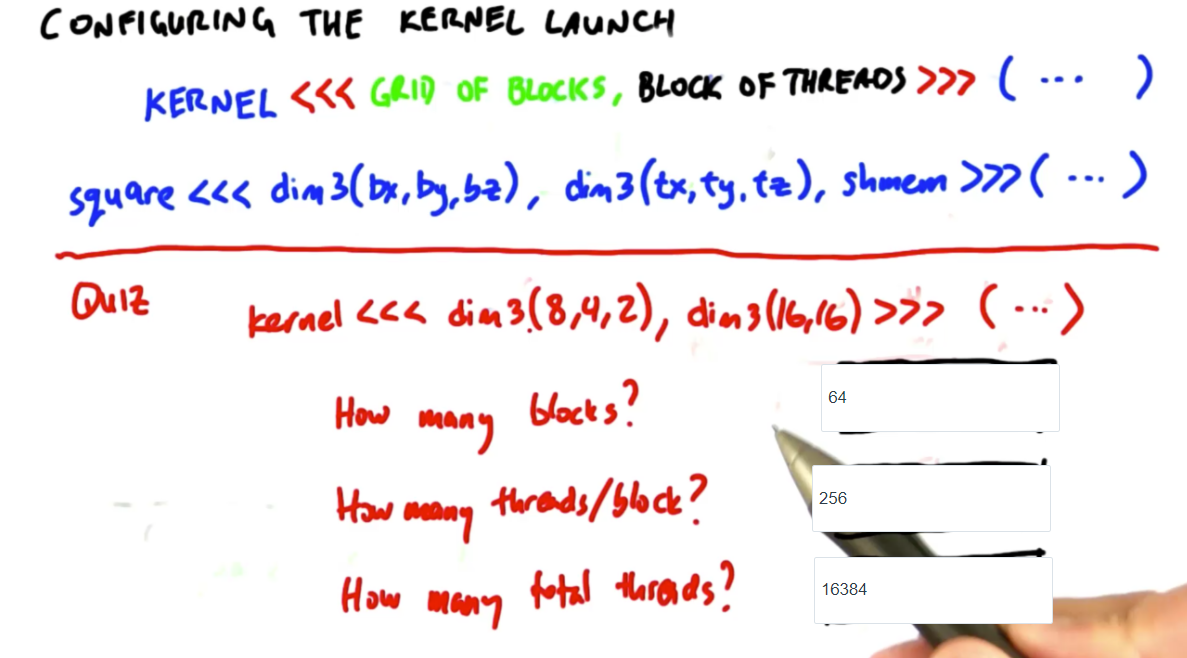 CONFIGURING THE KERNEL LAUNCH
KERNEL <<< GRID OF BLOCKS, BLOCK OF THREADS >>> ( ... )
square <<< dim3(bx,by,bz), dim3(tx,ty,tz), shmem >>> ( ... )
QUIZ kernel <<< dim3(8,4,2), dim3(16,16) >>> ( ... )
How many blocks? 64
How many threads/block? 256
How many total threads? 16384